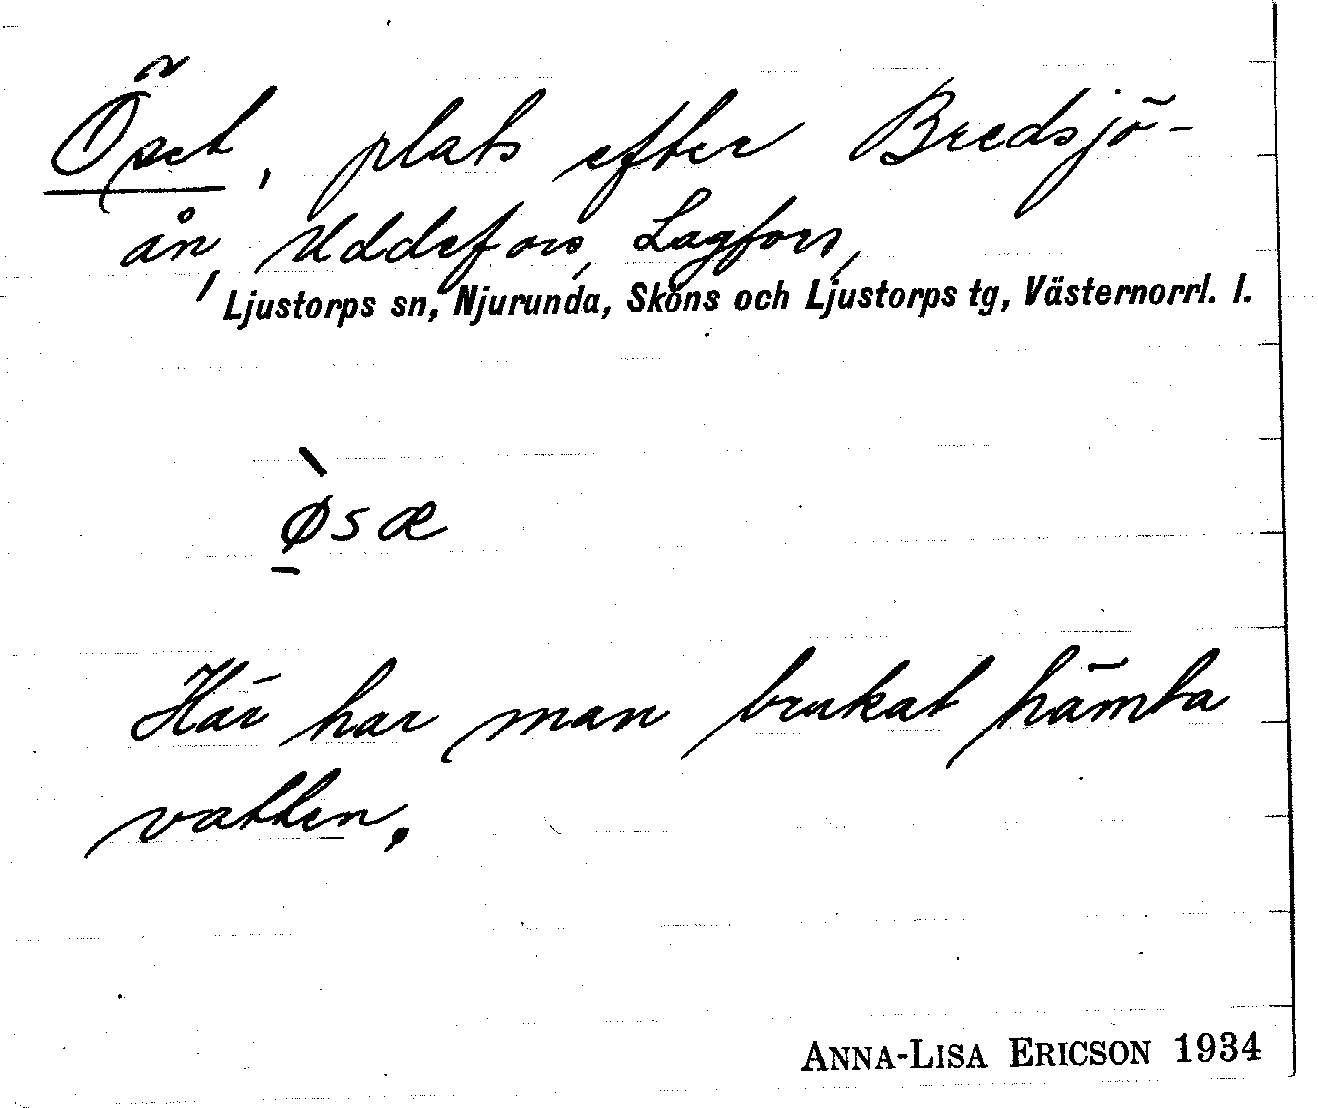 Öset, plats efter Bredsjö-
ån, Uddefors, Lagfors,
Ljustorps sn, Njurunda, Sköns och Ljustorps tg, Västernorrl. l.
ø̀sæ
Här har man brukat hämta
vatten.
ANNA-LISA ERICSON 1934